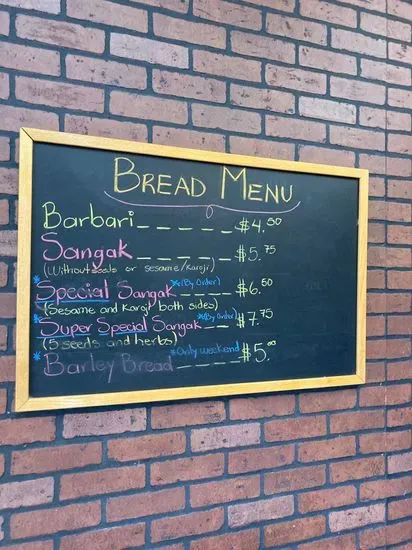 BREAD MENU
Barbari _ _ _ _ _ $4.50
Sangak _ _ _ _ _ $5.75
(Without seeds or sesame/Karoji)
*Special Sangak *(By Order) _ _ _ $6.50
(Sesame and Karoji both sides)
*Super Special Sangak *(By Order) _ _ $7.75
(5 seeds and herbs)
*Barley Bread *Only weekend _ _ _ $5.00